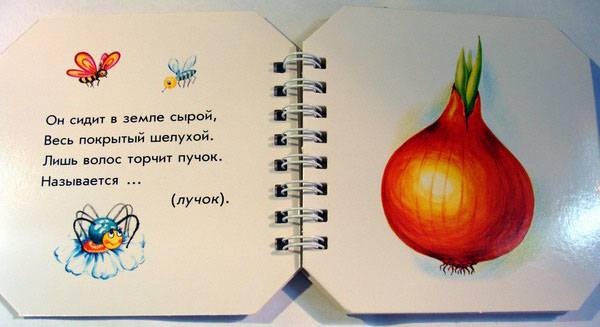 Он сидит в земле сырой,
Весь покрытый шелухой.
Лишь волос торчит пучок.
Называется ...
(лучок).